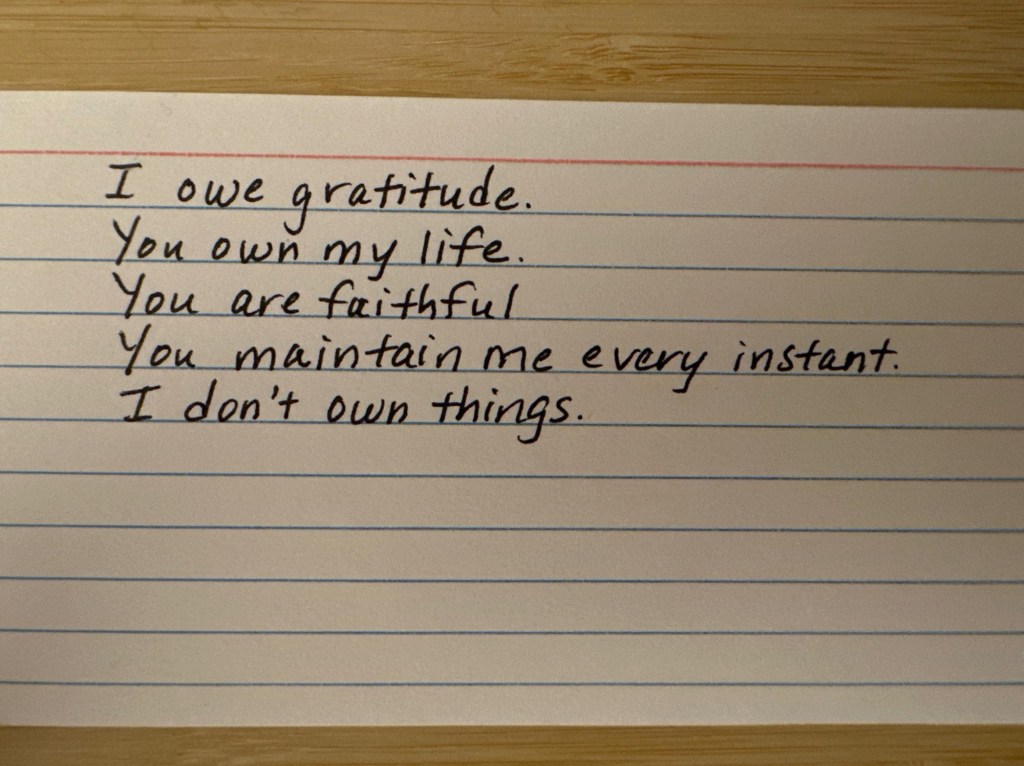 I owe gratitude.
You own my life.
You are faithful
You maintain me every instant.
I don't own things.